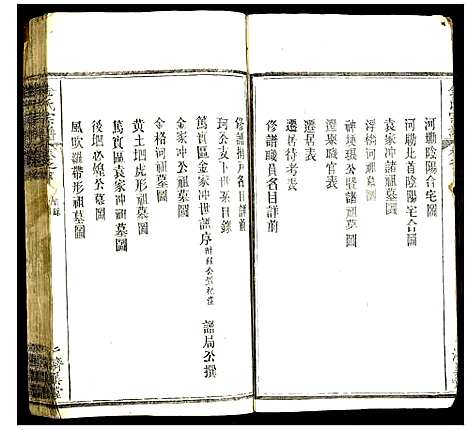 河墈陰陽合宅圖
河墈北首陰陽宅合圖
袁家冲諸祖墓圖
浮橋河祖墓圖
神埂琪公暨諸祖墓圖
遷樂職官表
遷居表
遷居待考表
修譜職員名目詳前
修譜捐戶名目詳前
珂公支下世系目錄
篤實區金家冲世譜序 譜局公撰
金家冲公祖墓圖
金格河祖墓圖
黄土堌虎形祖墓圖
篤實區袁家冲祖墓圖
後堌必煌公墓圖
風吹羅帶形祖墓圖
氏宗譜